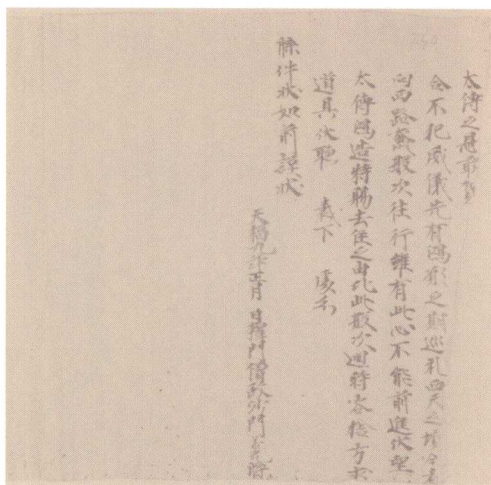 太傅之恩前賢
今不把威儀先有鴻願之期巡礼西天之境今者
向西路發般次往行雖有此心不能前進伏望
太傅鴻造特賜去往之由比此般次迴時容捨方求
道具伏聽 裁下 處分
牒件狀如前謹狀
天福九年正月 日釋門僧政沙門善光牒